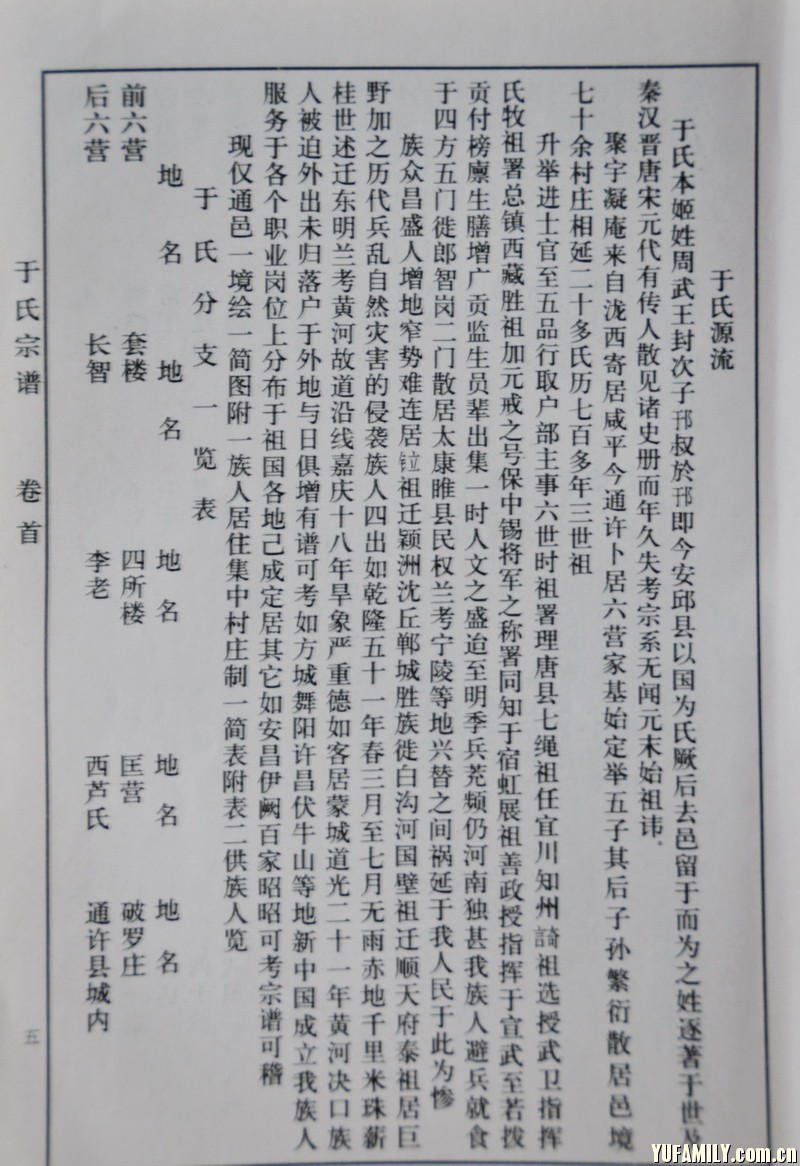 于氏源流
于氏本姬姓周武王封次子邘叔於邘即今安邱县以国为氏厥后去邑留于而为之姓逐著于世及
秦汉晋唐宋元代有传人散见诸史册而年久失考宗系无闻元末始祖讳
聚宇凝庵来自泷西寄居咸平今通许卜居六营家基始定举五子其后子孙繁衍散居邑境
七十余村庄相延二十多氏历七百多年三世祖
升举进士官至五品行取户部主事六世时祖署理唐县七绳祖任宜川知州䜢祖选授武卫指挥
氏牧祖署总镇西藏胜祖加元戒之号保中锡将军之称署同知于宿虹展祖善政授指挥于宣武至若拨
贡付榜廪生膳增广贡监生员辈出集一时人文之盛迨至明季兵荒频仍河南独甚我族人避兵就食
于四方五门徙郎智岗二门散居太康睢县民权兰考宁陵等地兴替之间祸延于我人民于此为惨
族众昌盛人增地窄势难连居 祖迁颖洲沈丘郸城胜族徙白沟河国壁祖迁顺天府泰祖居巨
野加之历代兵乱自然灾害的侵袭族人四出如乾隆五十一年春三月至七月无雨赤地千里米珠薪
桂世述迁东明兰考黄河故道沿线嘉庆十八年旱象严重德如客居蒙城道光二十一年黄河决口族
人被迫外出未归落户于外地与日俱增有谱可考如方城舞阳许昌伏牛山等地新中国成立我族人
服务于各个职业岗位上分布于祖国各地己成定居其它如安昌伊阙百家昭昭可考宗谱可稽
现仅通邑一境绘一简图附一族人居住集中村庄制一简表附表二供族人览
于氏分支一览表
地名 地名 地名 地名 地名
前六营 套楼 四所楼 匡营 破罗庄
后六营 长智 李老 西芦氏 通许县城内
于氏宗谱 卷首 五
YUFAMILY.com.cn